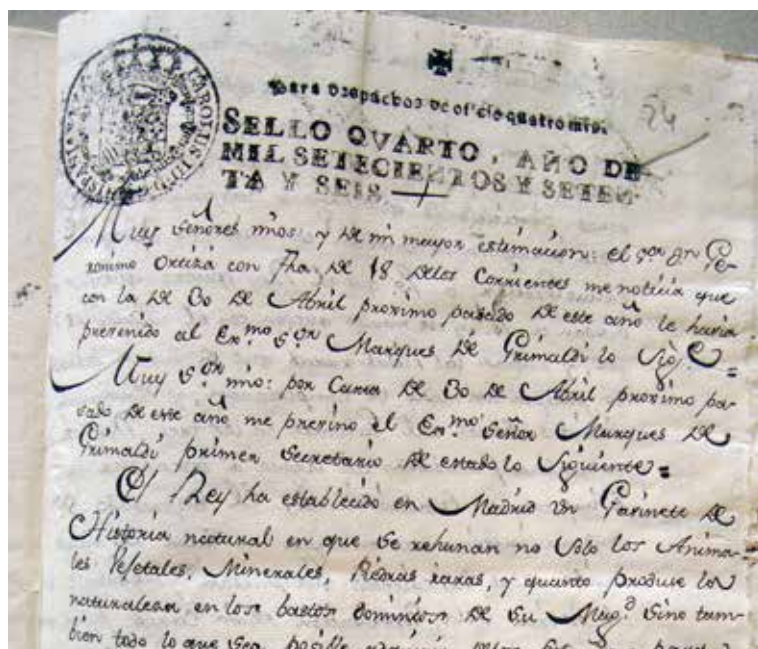 24
Para despachos de oficio quatro mrs.
SELLO QVARTO, AÑO DE
MIL SETECIENTOS Y SETEN-
TA Y SEIS
CAROLUS III D G HISPAN
Muy Señores mios: y de mi mayor estimacion: el Sor Dn Ge-
ronimo Ortiz con fha de 18 delos Corrientes me noticia que
con la de 30 de Abril proximo pasado de este año le havia
prevenido al Exmo Sor Marques de Grimaldi lo Sigte =
Muy Sor mio: por Carta de 30 de Abril proximo pa-
sado de este año me previno el Exmo Señor Marques de
Grimaldi primer Secretario de estado lo Siguiente =
El Rey ha establecido en Madrid un Gavinete de
Historia natural en que se rehunan no solo los Anima-
les Vejetales, Minerales, Piedras raras, y quanto produce la
naturaleza en los bastos dominios de su Magd sino tam-
bien todo lo que sea posible